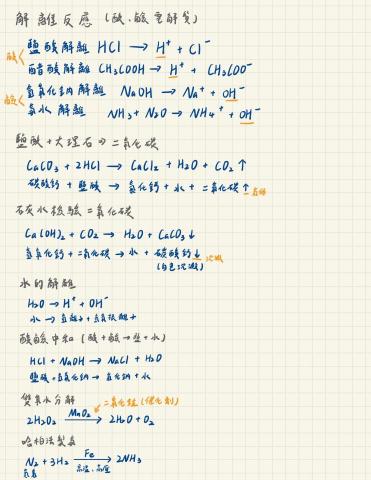 解離反應(酸、鹼電解質)
酸 鹽酸解離 HCl → H⁺ + Cl⁻
醋酸解離 CH₃COOH → H⁺ + CH₃COO⁻
鹼 氫氧化鈉解離 NaOH → Na⁺ + OH⁻
氨水解離 NH₃ + H₂O → NH₄⁺ + OH⁻
鹽酸+大理石⇒二氧化碳
CaCO₃ + 2HCl → CaCl₂ + H₂O + CO₂↑
碳酸鈣 + 鹽酸 → 氯化鈣 + 水 + 二氧化碳↑氣體
石灰水檢驗二氧化碳
Ca(OH)₂ + CO₂ → H₂O + CaCO₃↓
氫氧化鈣 + 二氧化碳 → 水 + 碳酸鈣↓沉澱
(白色沉澱)
水的解離
H₂O → H⁺ + OH⁻
水 → 氫離子 + 氫氧根離子
酸鹼中和(酸+鹼→鹽+水)
HCl + NaOH → NaCl + H₂O
鹽酸+氫氧化鈉→氯化鈉+水
雙氧水分解 二氧化錳(催化劑)
2H₂O₂ MnO₂→ 2H₂O + O₂
哈柏法製氨
N₂ + 3H₂ Fe→ 2NH₃
氮氣 高溫、高壓